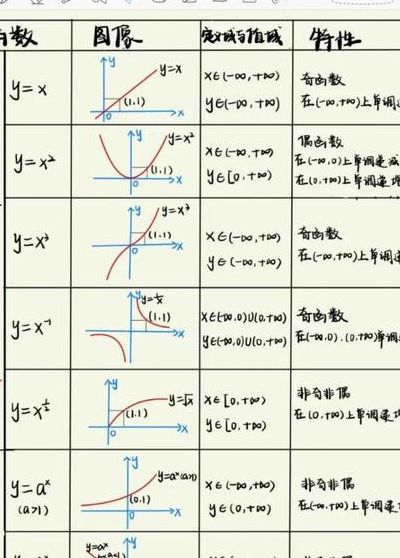 函数 图像 定义域与值域 特性
y=x
y
y=x
(1.1)
0
x
x∈(-∞,+∞)
y∈(-∞,+∞)
奇函数
在(-∞,+∞)上单调
y=x²
y
y=x²
(1.1)
0
x
x∈(-∞,+∞)
y∈[0,+∞)
偶函数
在(-∞,0)上单调递减
在(0,+∞)上单调递增
y=x³
y
y=x³
(1.1)
0
x
x∈(-∞,+∞)
y∈(-∞,+∞)
奇函数
在(-∞,+∞)上单调
y=x⁻¹
y
y=1/x
(1.1)
x
x∈(-∞,0)∪(0,+∞)
y∈(-∞,0)∪(0,+∞)
奇函数
在(-∞,0).(0,+∞)单调
y=x^½
y
y=√x
(1.1)
0
x
x∈[0,+∞)
y∈[0,+∞)
非奇非偶
在(0,+∞)上单调递增
y=aˣ
(a>1)
y
y=aˣ(a>1)
(0.1)
0
x
x∈(-∞,+∞)
y∈(0,+∞)
非奇非偶
在(-∞,+∞)上单调
y=aˣ
y